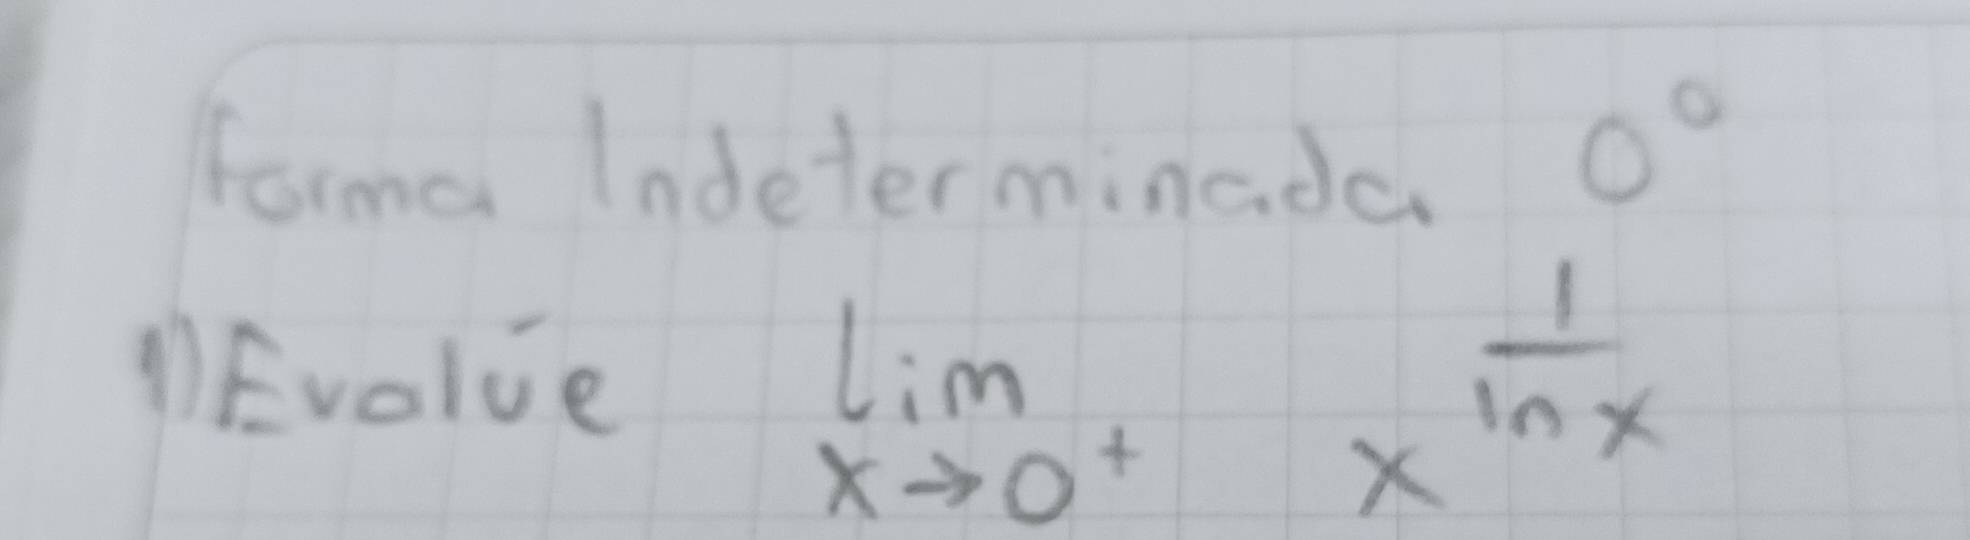 Forma Indeterminada 0⁰
1) Evalúe lim x→0⁺ x^(1/ln x)